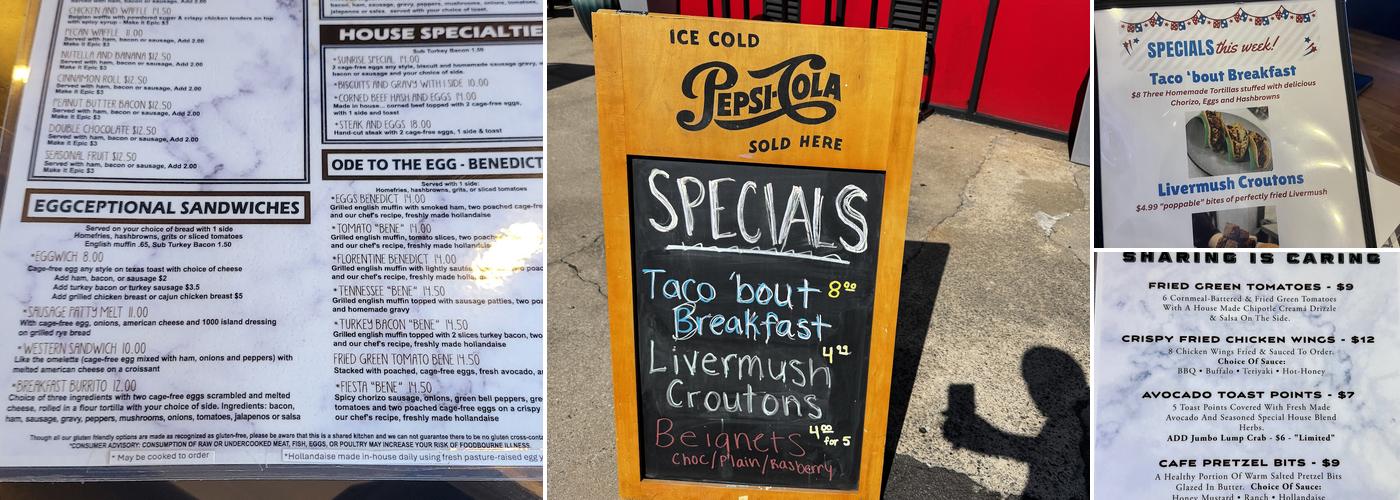 CHICKEN AND WAFFLE 14.50
Belgian waffle with powdered sugar & crispy chicken tenders on top
with spicy syrup - Make it Epic $3
PECAN WAFFLE 11.00
Served with ham, bacon or sausage, Add 2.00
Make It Epic $3
NUTELLA AND BANANA $12.50
Served with ham, bacon or sausage, Add 2.00
Make It Epic $3
CINNAMON ROLL $12.50
Served with ham, bacon or sausage, Add 2.00
Make it Epic $3
PEANUT BUTTER BACON $12.50
Served with ham, bacon or sausage, Add 2.00
Make It Epic $3
DOUBLE CHOCOLATE $12.50
Served with ham, bacon or sausage, Add 2.00
Make it Epic $3
SEASONAL FRUIT $12.50
Served with ham, bacon or sausage, Add 2.00
Make it Epic $3
EGGCEPTIONAL SANDWICHES
Served on your choice of bread with 1 side
Homefries, hashbrowns, grits or sliced tomatoes
English muffin .65, Sub Turkey Bacon 1.50
*EGGWICH 8.00
Cage-free egg any style on texas toast with choice of cheese
Add ham, bacon, or sausage $2
Add turkey bacon or turkey sausage $3.5
Add grilled chicken breast or cajun chicken breast $5
*SAUSAGE PATTY MELT 11.00
With cage-free egg, onions, american cheese and 1000 island dressing
on grilled rye bread
*WESTERN SANDWICH 10.00
Like the omelette (cage-free egg mixed with ham, onions and peppers) with
melted american cheese on a croissant
*BREAKFAST BURRITO 12.00
Choice of three ingredients with two cage-free eggs scrambled and melted
cheese, rolled in a flour tortilla with your choice of side. Ingredients: bacon,
ham, sausage, gravy, peppers, mushrooms, onions, tomatoes, jalapenos or salsa
bacon, ham, sausage, gravy, peppers, mushrooms, onions, tomatoes,
jalapenos or salsa, served with your choice of toast.
HOUSE SPECIALTIE
Sub Turkey Bacon 1.50
*SUNRISE SPECIAL 14.00
2 cage-free eggs any style, biscuit and homemade sausage gravy, w
bacon or sausage and your choice of side.
*BISCUITS AND GRAVY WITH 1 SIDE 10.00
*CORNED BEEF HASH AND EGGS 14.00
Made in house... corned beef topped with 2 cage-free eggs,
with 1 side and toast
*STEAK AND EGGS 18.00
Hand-cut steak with 2 cage-free eggs, 1 side & toast
ODE TO THE EGG - BENEDICT
Served with 1 side:
Homefries, hashbrowns, grits, or sliced tomatoes
*EGGS BENEDICT 14.00
Grilled english muffin with smoked ham, two poached cage-fre
and our chef's recipe, freshly made hollandaise
*TOMATO "BENE" 14.00
Grilled english muffin, tomato slices, two poach
and our chef's recipe, freshly made hollandaise
*FLORENTINE BENEDICT 14.00
Grilled english muffin with lightly
and our chef's recipe, freshly made
*TENNESSEE "BENE" 14.50
Grilled english muffin topped with sausage patties, two po
and homemade gravy
*TURKEY BACON "BENE" 14.50
Grilled english muffin topped with 2 slices turkey bacon, two
and our chef's recipe, freshly made hollandaise
FRIED GREEN TOMATO BENE 14.50
Stacked with poached, cage-free eggs, fresh avocado, a
*FIESTA "BENE" 14.50
Spicy chorizo sausage, onions, green bell peppers, gre
tomatoes and two poached cage-free eggs on a crispy
our chef's recipe, freshly made hollandaise
Though all our gluten friendly options are made as recognized as gluten-free, please be aware that this is a shared kitchen and we can not guarantee there to be no gluten cross-conta
*CONSUMER ADVISORY: CONSUMPTION OF RAW OR UNDERCOOKED MEAT, FISH, EGGS, OR POULTRY MAY INCREASE YOUR RISK OF FOODBOURNE ILLNESS
* May be cooked to order
*Hollandaise made in-house daily using fresh pasture-raised egg y
ICE COLD
PEPSI-COLA
SOLD HERE
SPECIALS
Taco 'bout 8.00
Breakfast
Livermush 4.99
Croutons
Beignets 4.00 for 5
Choc/Plain/Rasberry
SPECIALS this week!
Taco 'bout Breakfast
$8 Three Homemade Tortillas stuffed with delicious
Chorizo, Eggs and Hashbrowns
Livermush Croutons
$4.99 "poppable" bites of perfectly fried Livermush
SHARING IS CARING
FRIED GREEN TOMATOES - $9
6 Cornmeal-Battered & Fried Green Tomatoes
With A House Made Chipotle Creamá Drizzle
& Salsa On The Side.
CRISPY FRIED CHICKEN WINGS - $12
8 Chicken Wings Fried & Sauced To Order.
Choice Of Sauce:
BBQ • Buffalo • Teriyaki • Hot-Honey
AVOCADO TOAST POINTS - $7
5 Toast Points Covered With Fresh Made
Avocado And Seasoned Special House Blend
Herbs.
ADD Jumbo Lump Crab - $6 - "Limited"
CAFE PRETZEL BITS - $9
A Healthy Portion Of Warm Salted Pretzel Bits
Glazed In Butter. Choice Of Sauce:
Honey Mustard • Ranch • Hollandaise